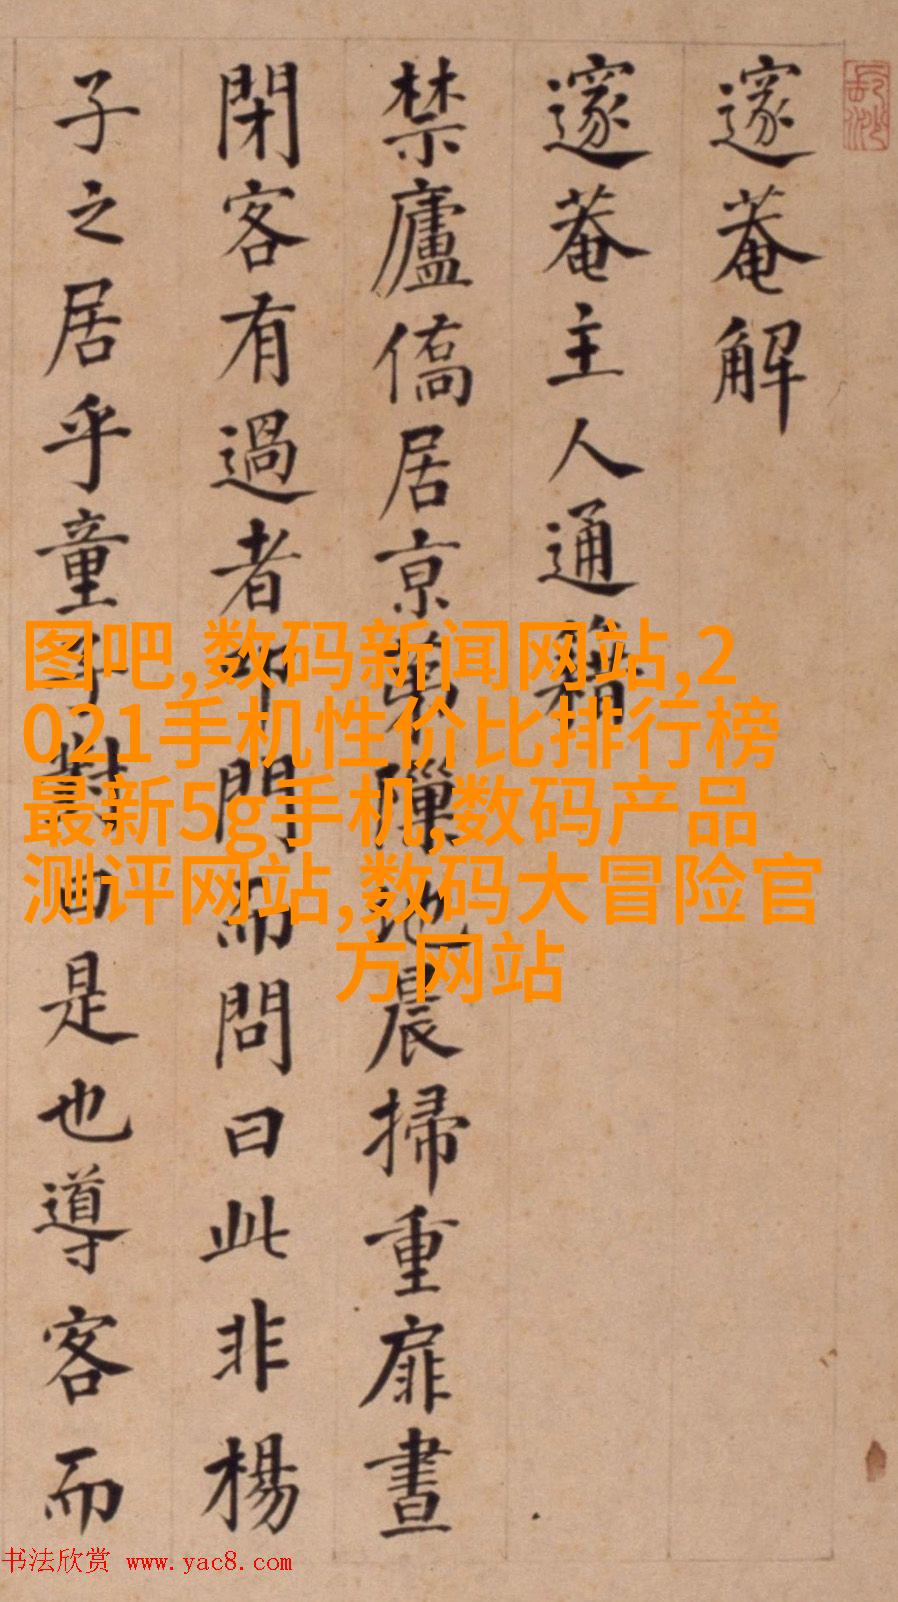 邃菴解
邃菴主人通籍
禁廬僑居京地晨掃重扉晝
閉客有過者叩門而問曰此非楊
子之居乎童子對曰是也導客而
图吧,数码新闻网站,2
021手机性价比排行榜
最新5g手机,数码产品
测评网站,数码大冒险官
方网站
书法欣赏 www.yac8.com